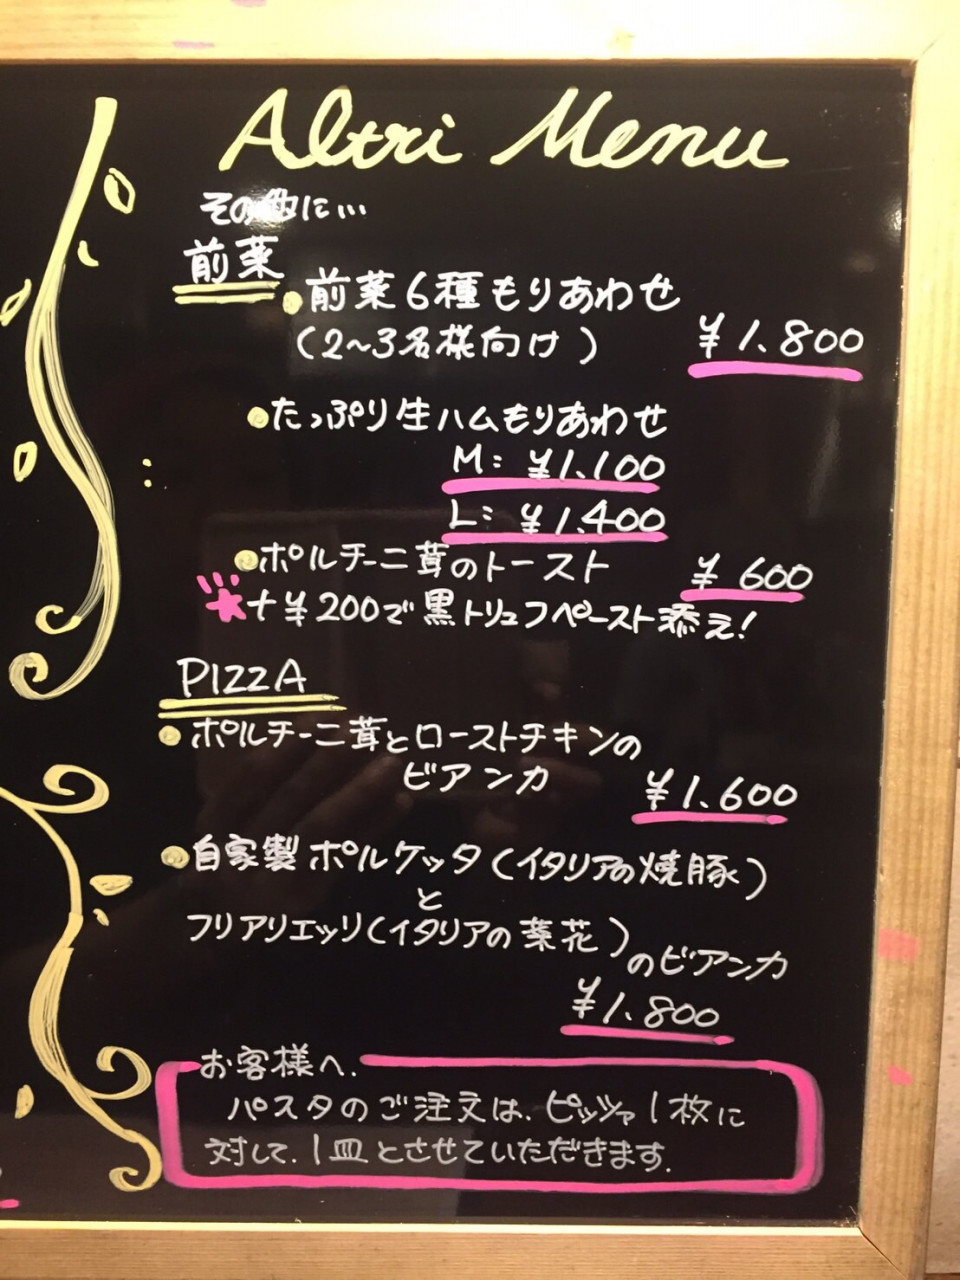 Altri Menu
その他に…
前菜
前菜6種もりあわせ
(2~3名様向け) ¥1.800
たっぷり生ハムもりあわせ
M: ¥1.100
L: ¥1.400
ポルチーニ茸のトースト ¥600
+¥200で黒トリュフペースト添え!
PIZZA
ポルチーニ茸とローストチキンの
ビアンカ ¥1.600
自家製ポルケッタ(イタリアの焼豚)
と
フリアリエッリ(イタリアの菜花)
のビアンカ
¥1.800
お客様へ.
パスタのご注文は、ピッツァ1枚に
対して、1皿とさせていただきます。